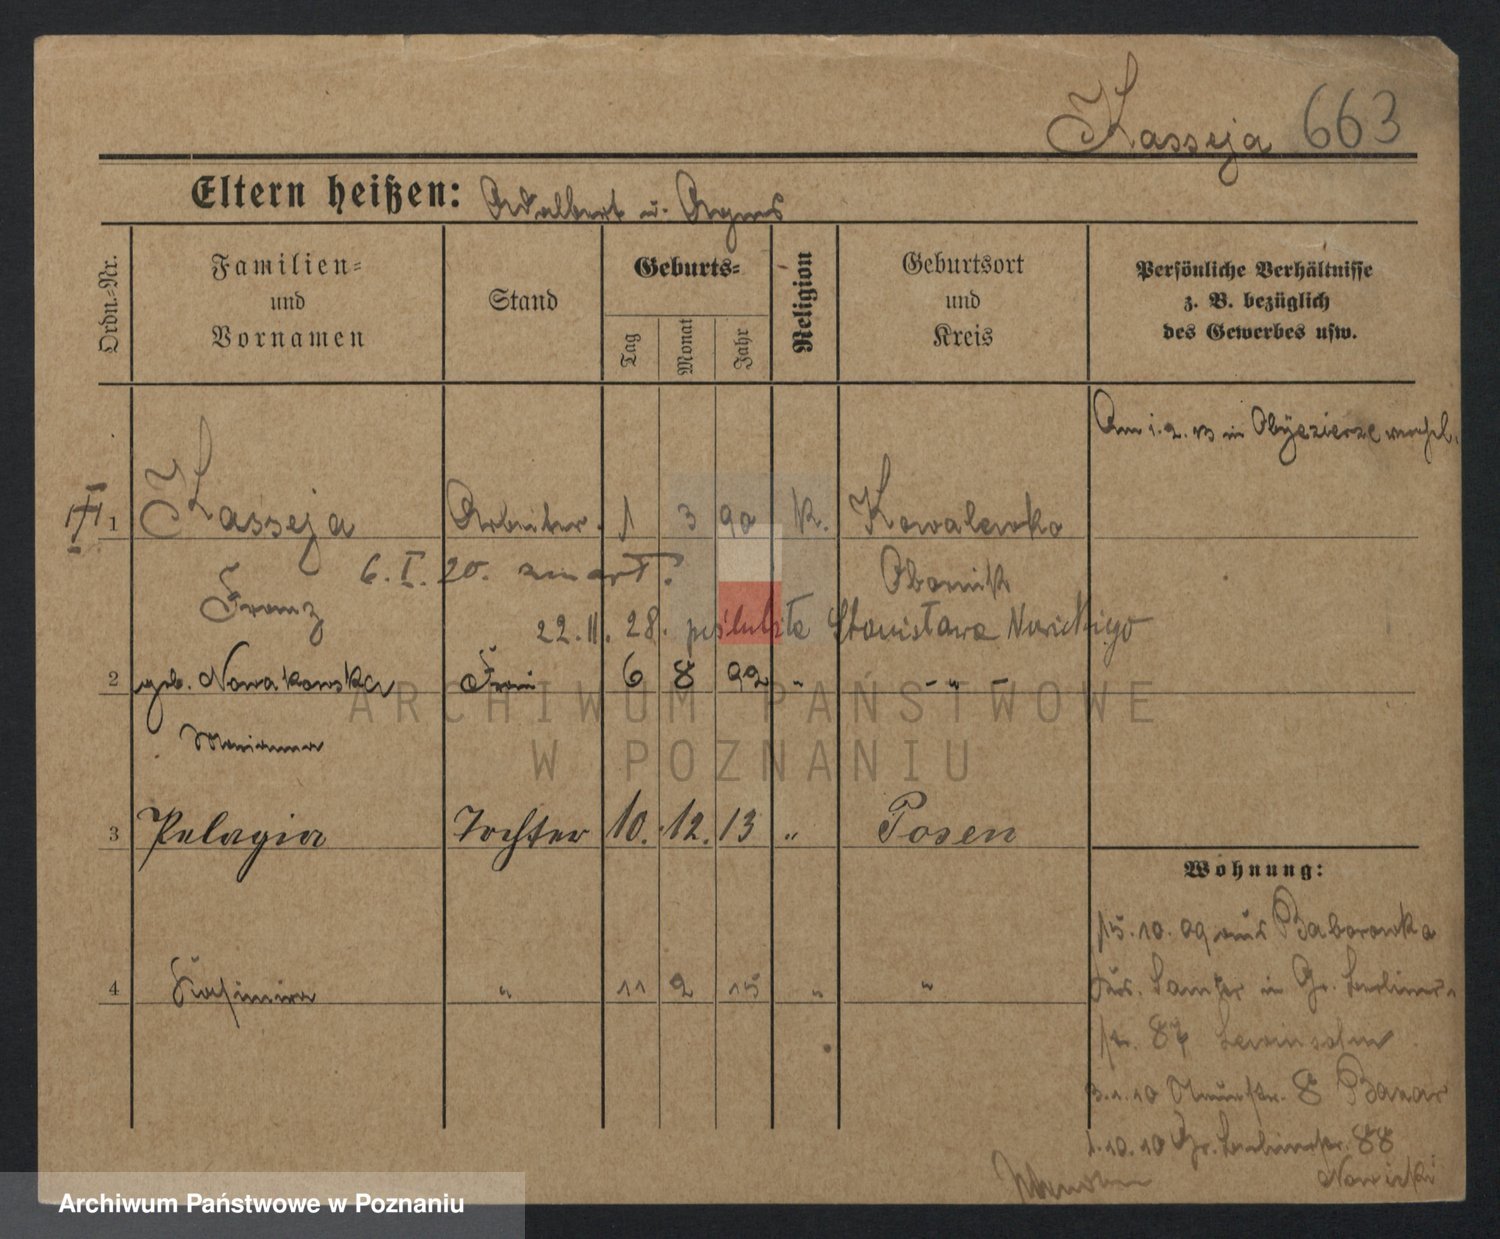 Kasseja 663
Eltern heißen: Adalbert u. Agnes
Ordn.-Nr.
Familien-
und
Vornamen
Stand
Geburts-
Tag
Monat
Jahr
Religion
Geburtsort
und
Kreis
Persönliche Verhältnisse
z. B. bezüglich
des Gewerbes usw.
Am 1.2.13 in Obyezierze verehel.
1 Kasseja Arbeiter. 1 3 90 k. Kowalewko
6.I.20. zmarł. Obornik
Franz
22.II.28. poślubiła Stanisława Nowickiego
2 geb. Nowakowska Frau 6 8 92 " - " -
Marianna
3 Pelagia Tochter 10. 12. 13 " Posen
Wohnung:
15.10.09 aus Baborowko
4 Kasimira " 11 2 15 " "
Krs. Samter in Gr. Berliner-
str. 87 Lewinsohn
3.1.10 8 Bazar
1.10.10 Gr. Berlinerstr. 88
Nowicki
ARCHIWUM PAŃSTWOWE
W POZNANIU
Archiwum Państwowe w Poznaniu